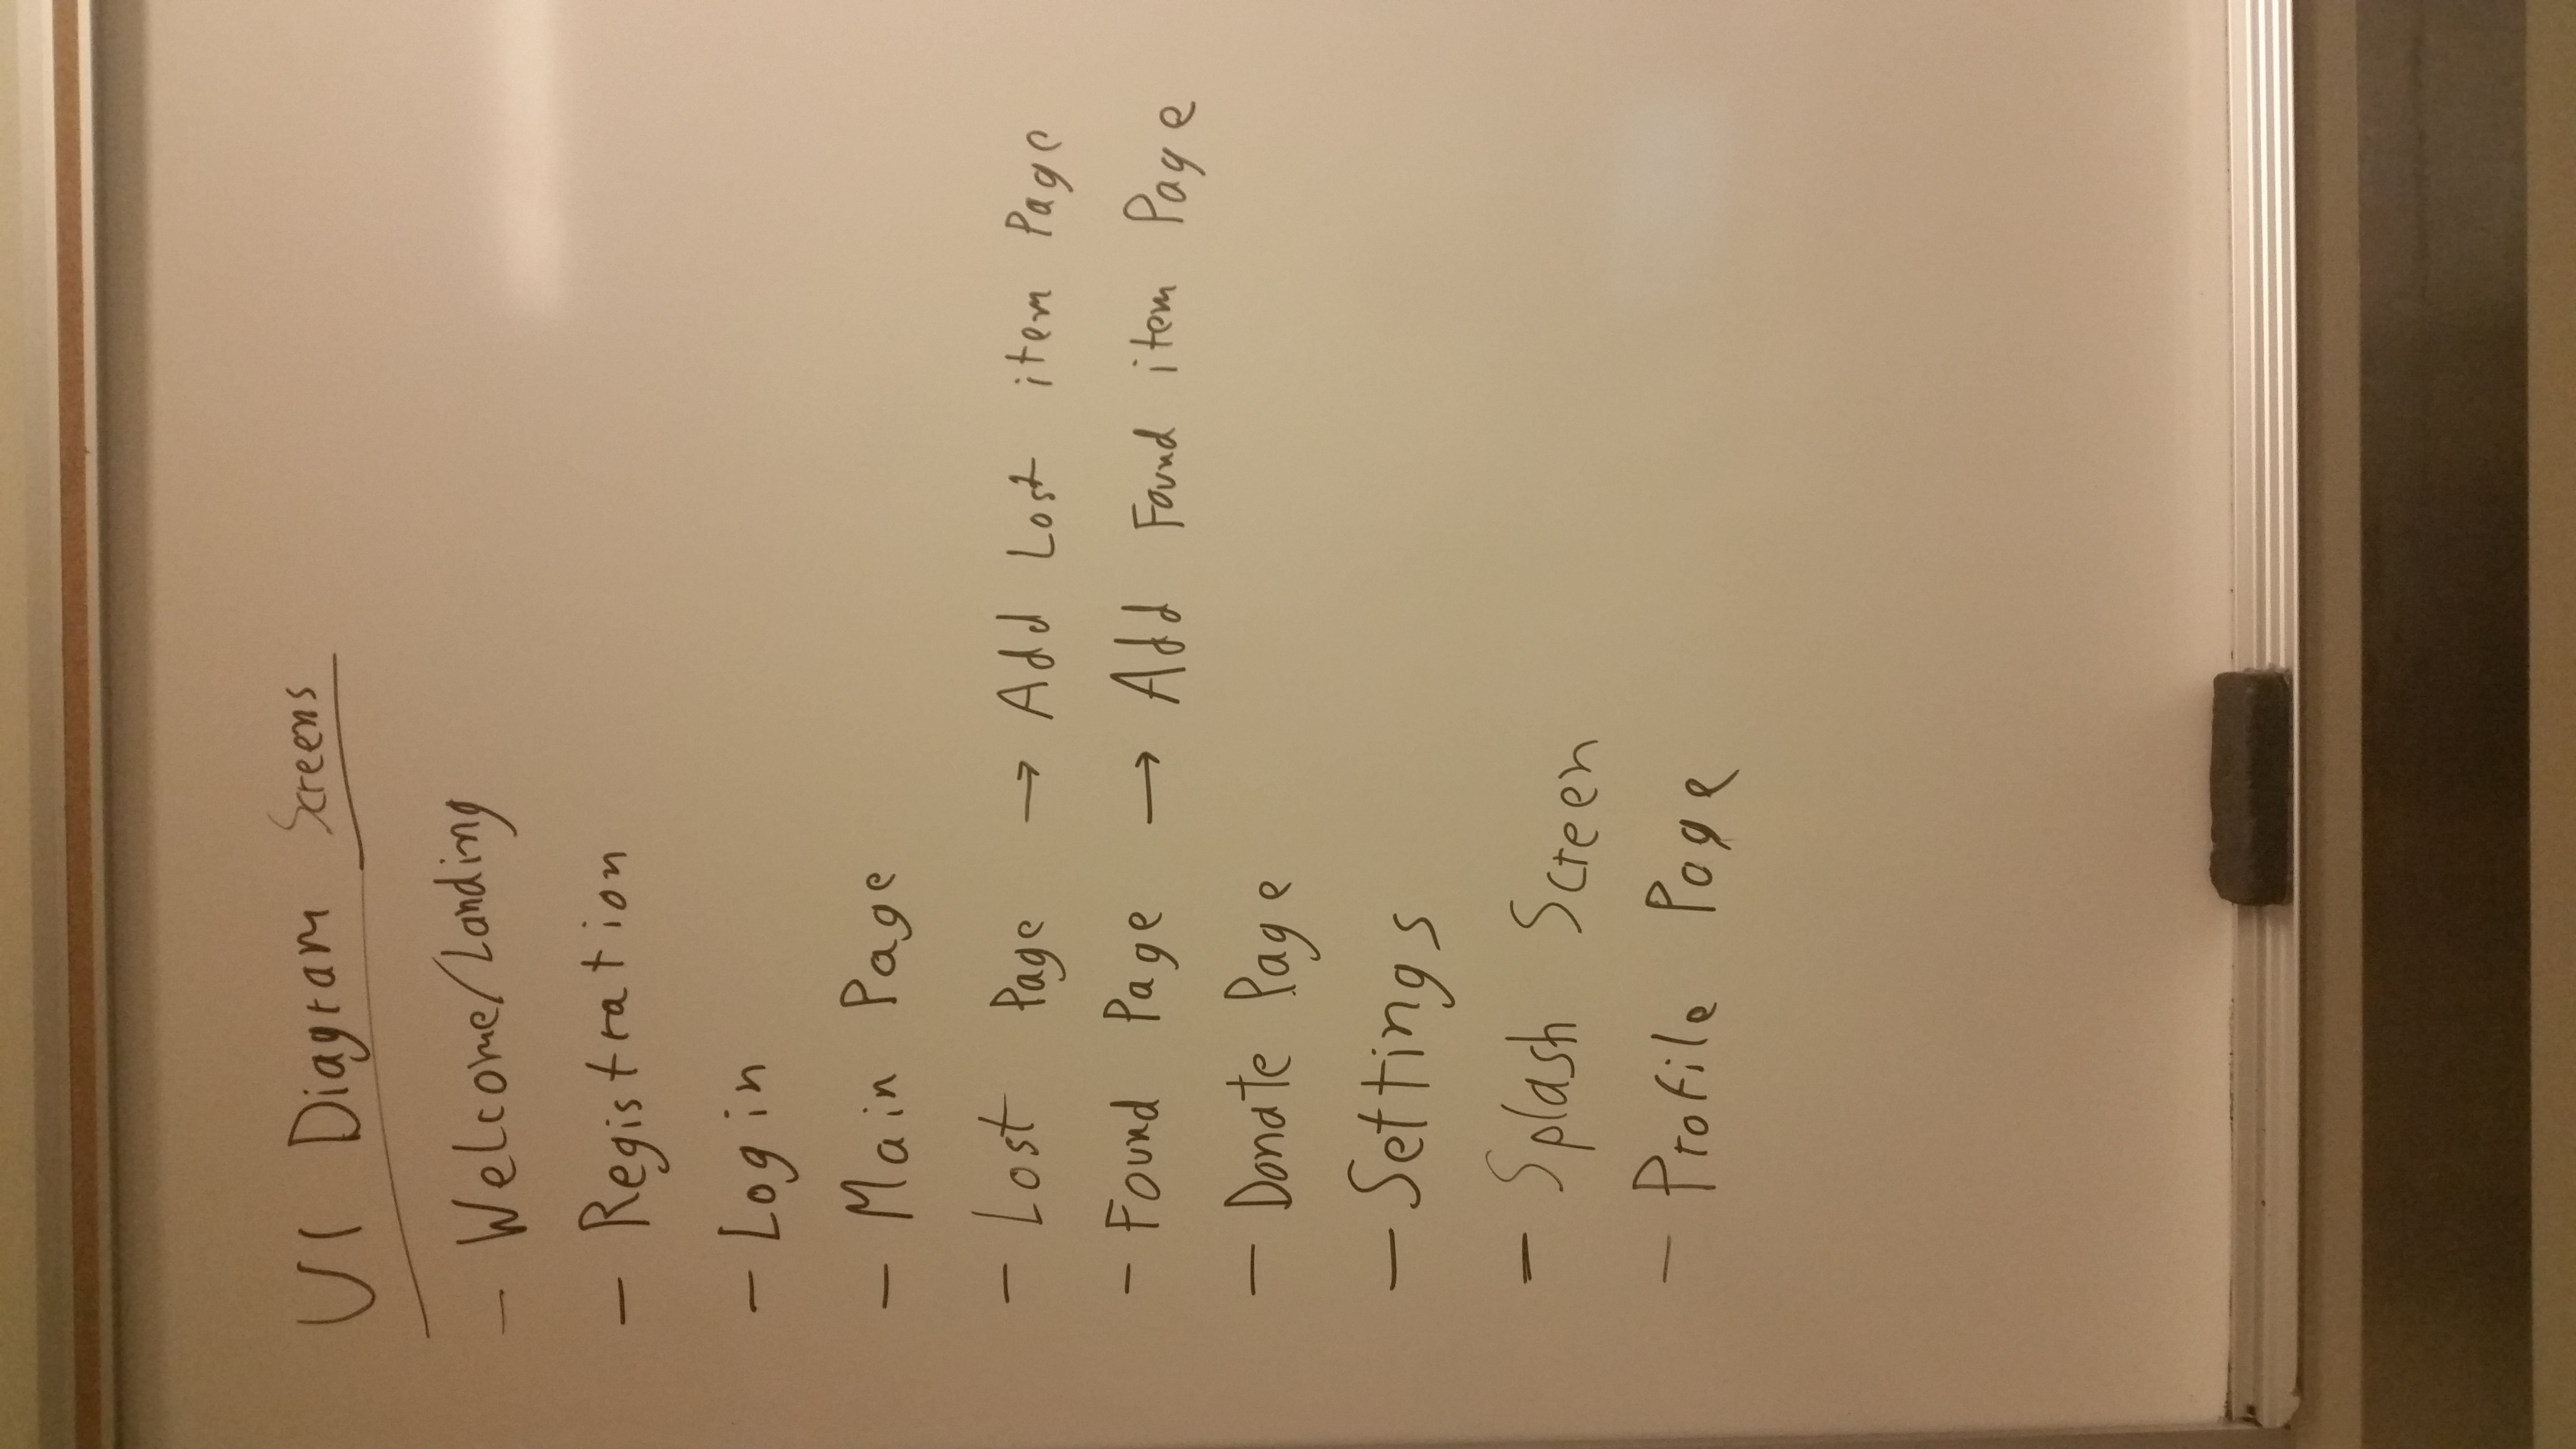 UI Diagram Screens
- Welcome/Landing
- Registration
- Login
- Main Page
- Lost Page → Add Lost item Page
- Found Page → Add Found item Page
- Donate Page
- Settings
- Splash Screen
- Profile Page